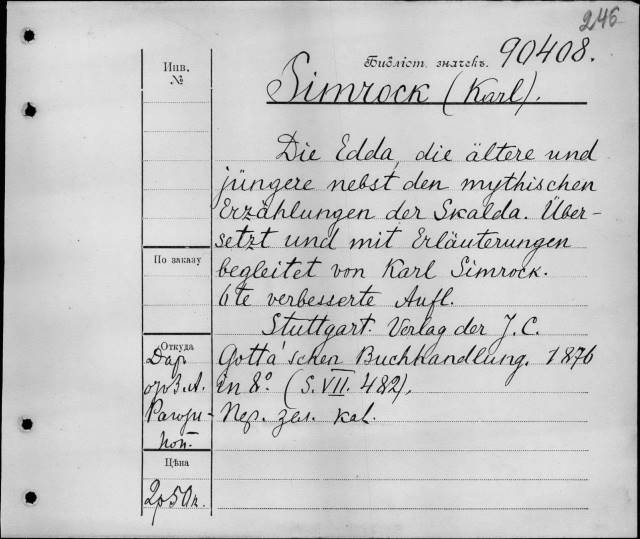 246
Библіот. значекъ. 90408.
Инв.
№
Simrock (Karl).
Die Edda, die ältere und
jüngere nebst den mythischen
Erzählungen der Skalda. Über-
setzt und mit Erläuterungen
По заказу
begleitet von Karl Simrock.
6te verbesserte Aufl.
Stuttgart. Verlag der J. C.
Откуда
Gotta'schen Buchhandlung. 1876
Дар
in 8º. (S. VII. 482).
Пер. зел. кал.
Цѣна
2р50к.